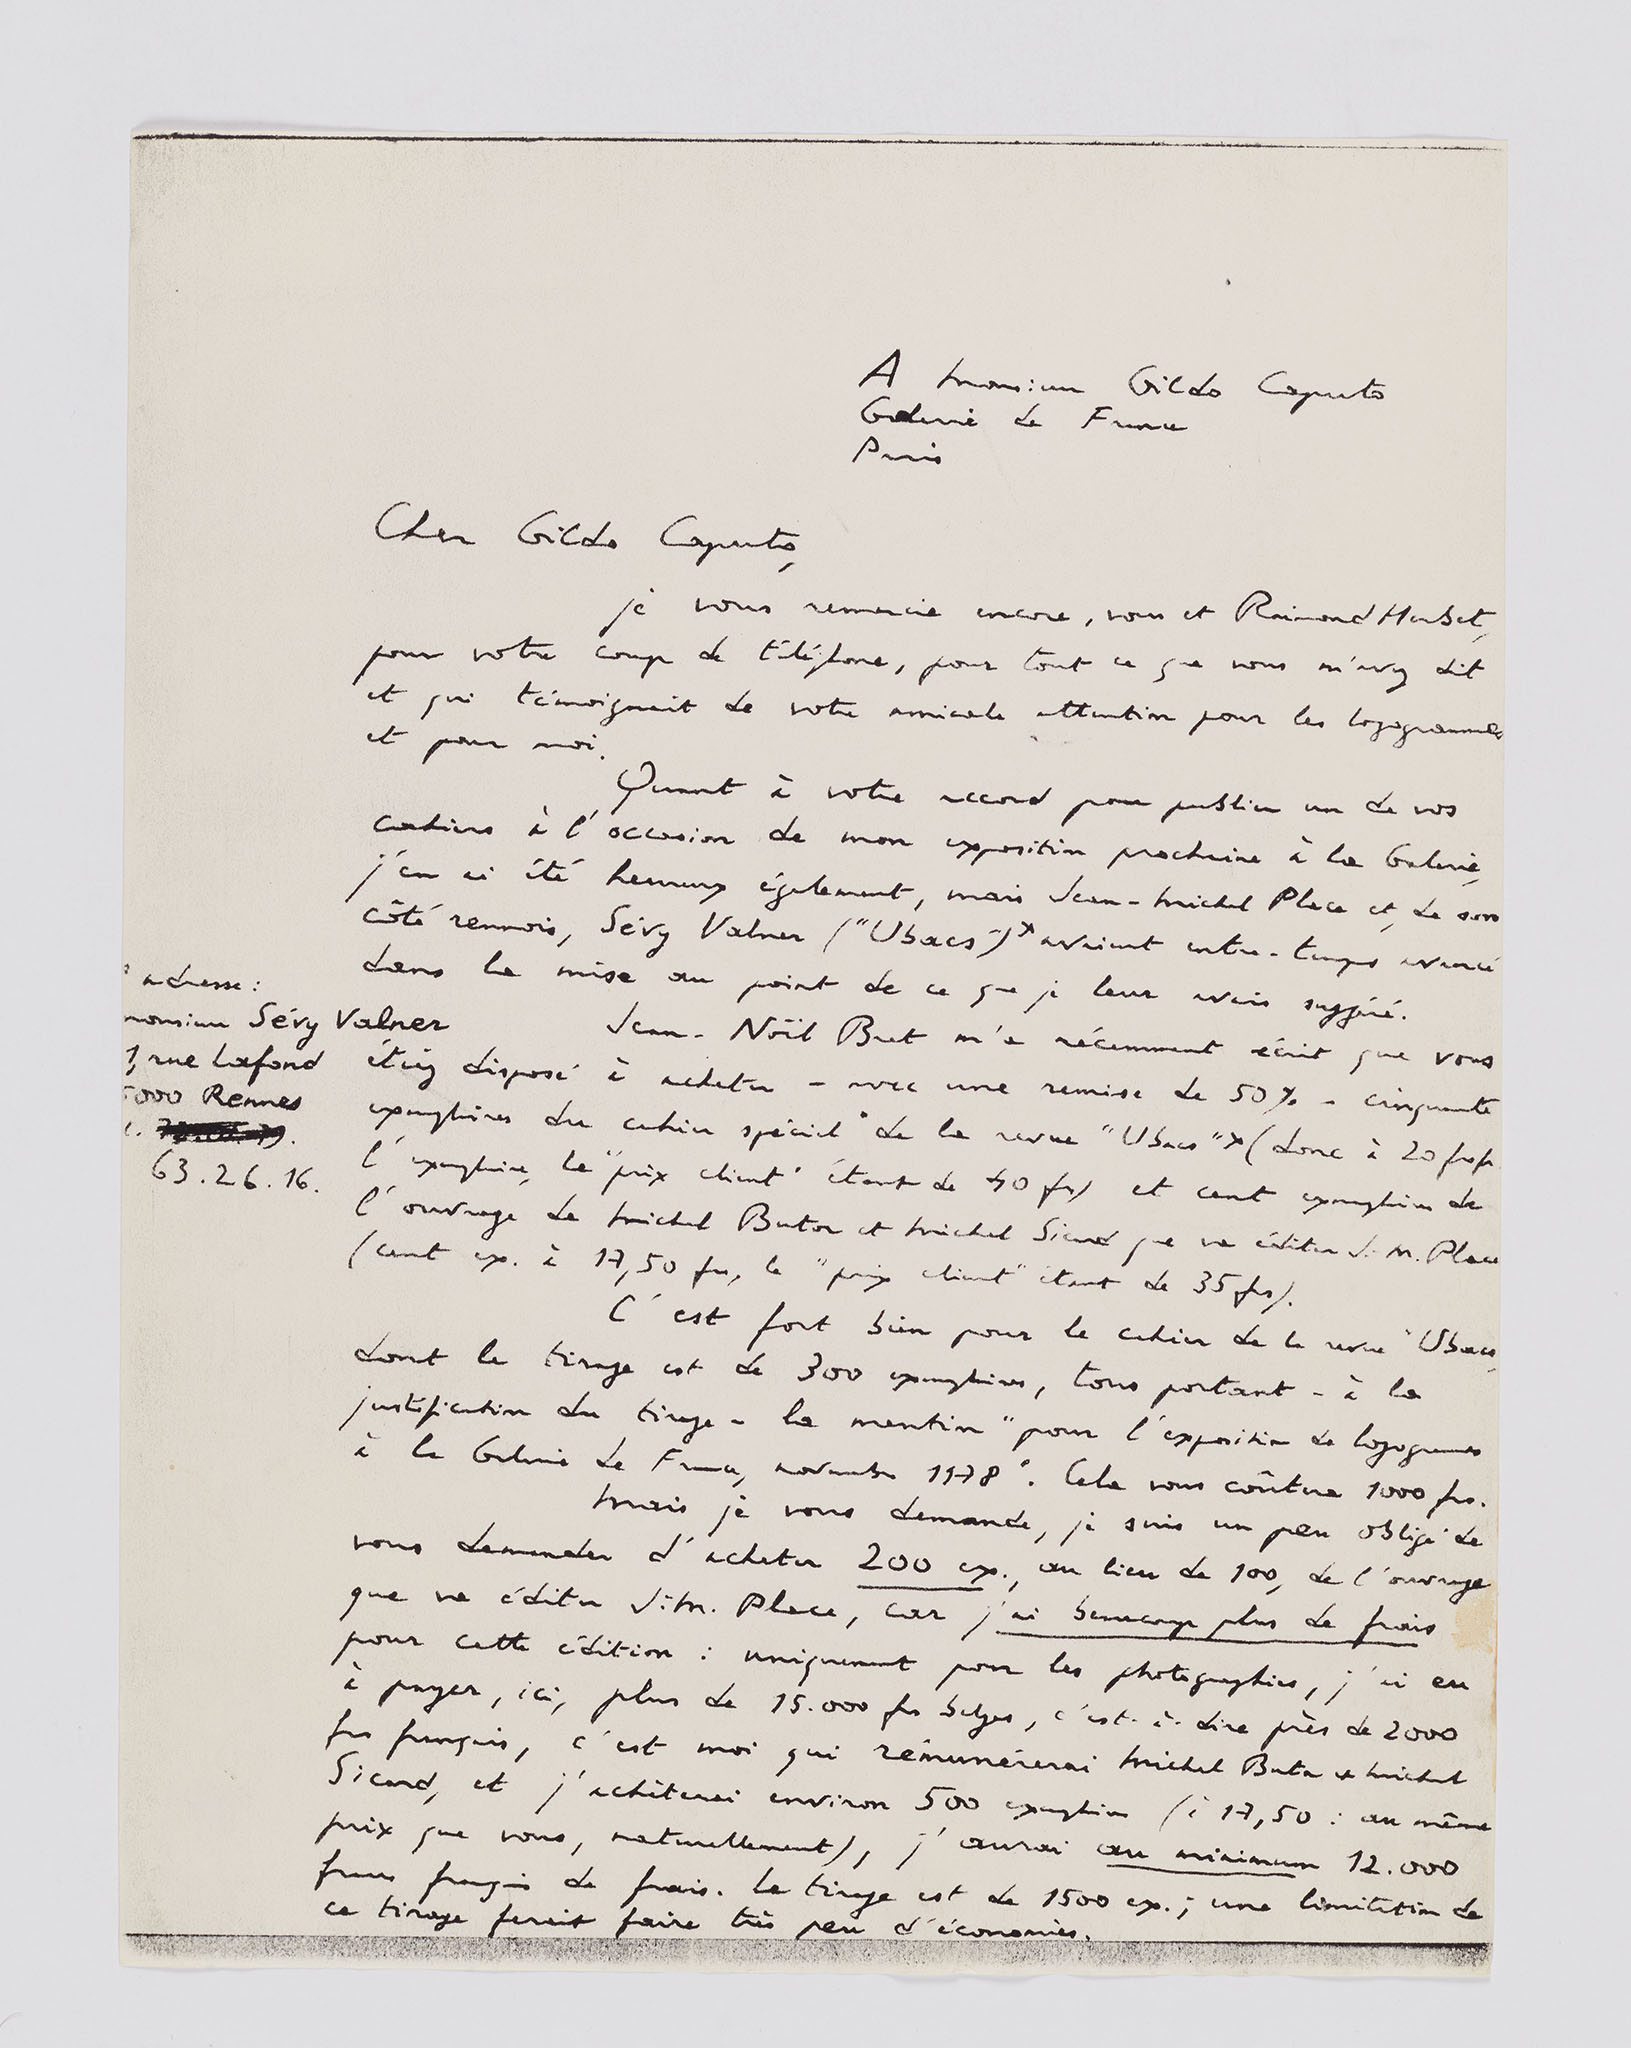 A Monsieur Gildo Caputo
Galerie de France
Paris
Cher Gildo Caputo,
je vous remercie encore, vous et Raimond Herbet,
pour votre coup de téléfone, pour tout ce que vous m'avez dit
et qui témoignait de votre amicale attention pour les logogrammes
et pour moi.
Quant à votre accord pour publier un de vos
cahiers à l'occasion de mon exposition prochaine à la Galerie,
j'en ai été heureux également, mais Jean-Michel Place et, de son
côté rennois, Sévy Valner ("Ubacs")* avaient entre-temps avancé
dans la mise au point de ce que je leur avais suggéré.
* adresse :
monsieur Sévy Valner
1, rue Lafond
5000 Rennes
63.26.16.
Jean-Noël Bret m'a récemment écrit que vous
étiez disposé à acheter - avec une remise de 50% - cinquante
exemplaires du cahier spécial de la revue "Ubacs"* (donc à 20 frs fr.
l'exemplaire, le "prix client" étant de 40 frs) et cent exemplaires de
l'ouvrage de Michel Butor et Michel Sicard que va éditer J.M. Place
(cent ex. à 17,50 frs, le "prix client" étant de 35 frs).
C'est fort bien pour le cahier de la revue "Ubacs,
dont le tirage est de 300 exemplaires, tous portant - à la
justification du tirage - la mention "pour l'exposition de logogrammes
à la Galerie de France, novembre 1978". Cela vous coûtera 1000 frs.
Mais je vous demande, je suis un peu obligé de
vous demander d'acheter 200 ex., au lieu de 100, de l'ouvrage
que va éditer J.M. Place, car j'ai beaucoup plus de frais
pour cette édition : uniquement pour les photographies, j'ai eu
à payer, ici, plus de 15.000 frs belges, c'est-à-dire près de 2000
frs français, c'est moi qui rémunérerai Michel Butor et Michel
Sicard, et j'achèterai environ 500 exemplaires (à 17,50 : au même
prix que vous, naturellement), j'aurai au minimum 12.000
francs français de frais. Le tirage est de 1500 ex. ; une limitation de
ce tirage ferait faire très peu d'économies.